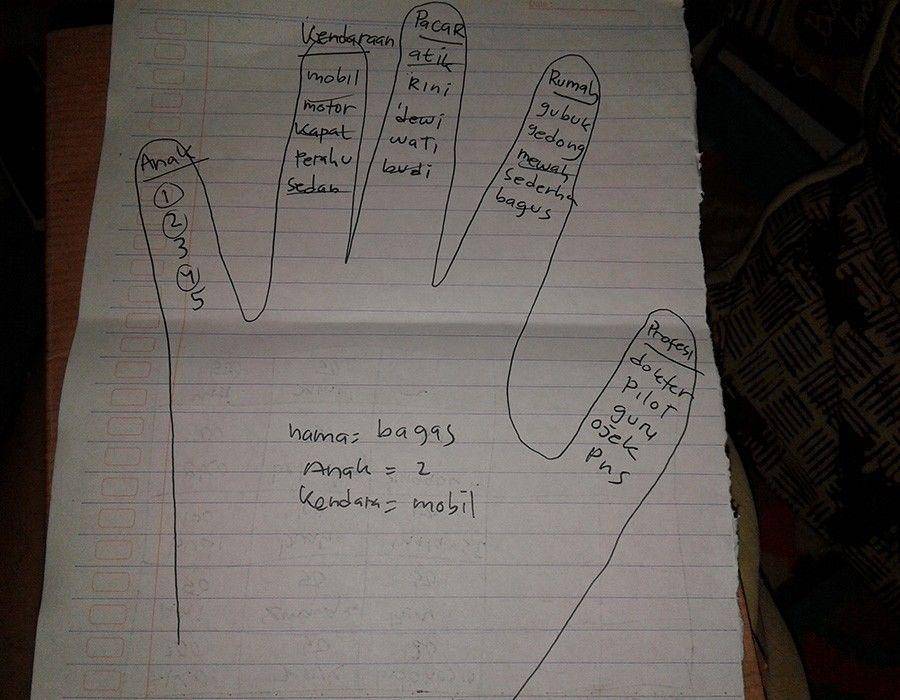 Anak
1
2
3
4
5
Kendaraan
mobil
motor
Kapal
Perahu
Sedan
Pacar
atik
Rini
dewi
wati
budi
Rumah
gubuk
gedong
mewah
Sederha
bagus
Profesi
dokter
Pilot
guru
ojek
Pns
nama= bagas
Anak = 2
Kendara= mobil